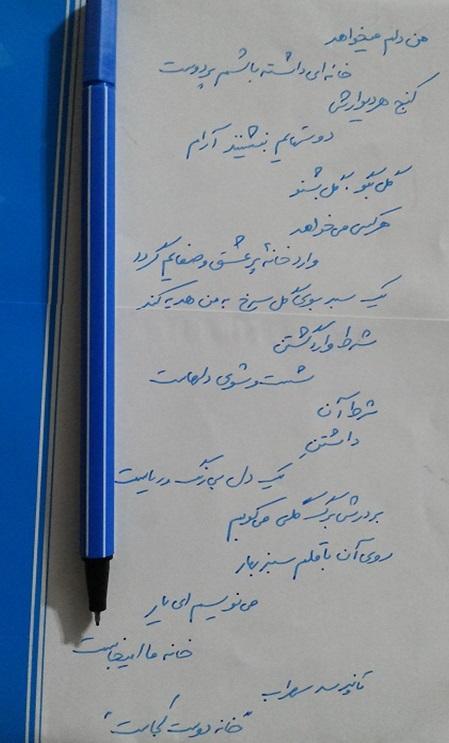 من دلم میخواهد
خانه‌ای داشته باشم پر دوست
کنج هر دیوارش
دوستهایم بنشینند آرام
گل بگو گل بشنو
هرکسی می‌خواهد
وارد خانهٔ پر عشق و صفایم گردد
یک سبد بوی گل سرخ به من هدیه کند
شرط وارد گشتن
شست و شوی دلهاست
شرط آن
داشتنِ
یک دل بی رنگ و ریاست
بر درش برگ گلی می‌کوبم
روی آن با قلم سبز بهار
می‌نویسم ای یار
خانه ما اینجاست
تا نپرسد سهراب
"خانه دوست کجاست"